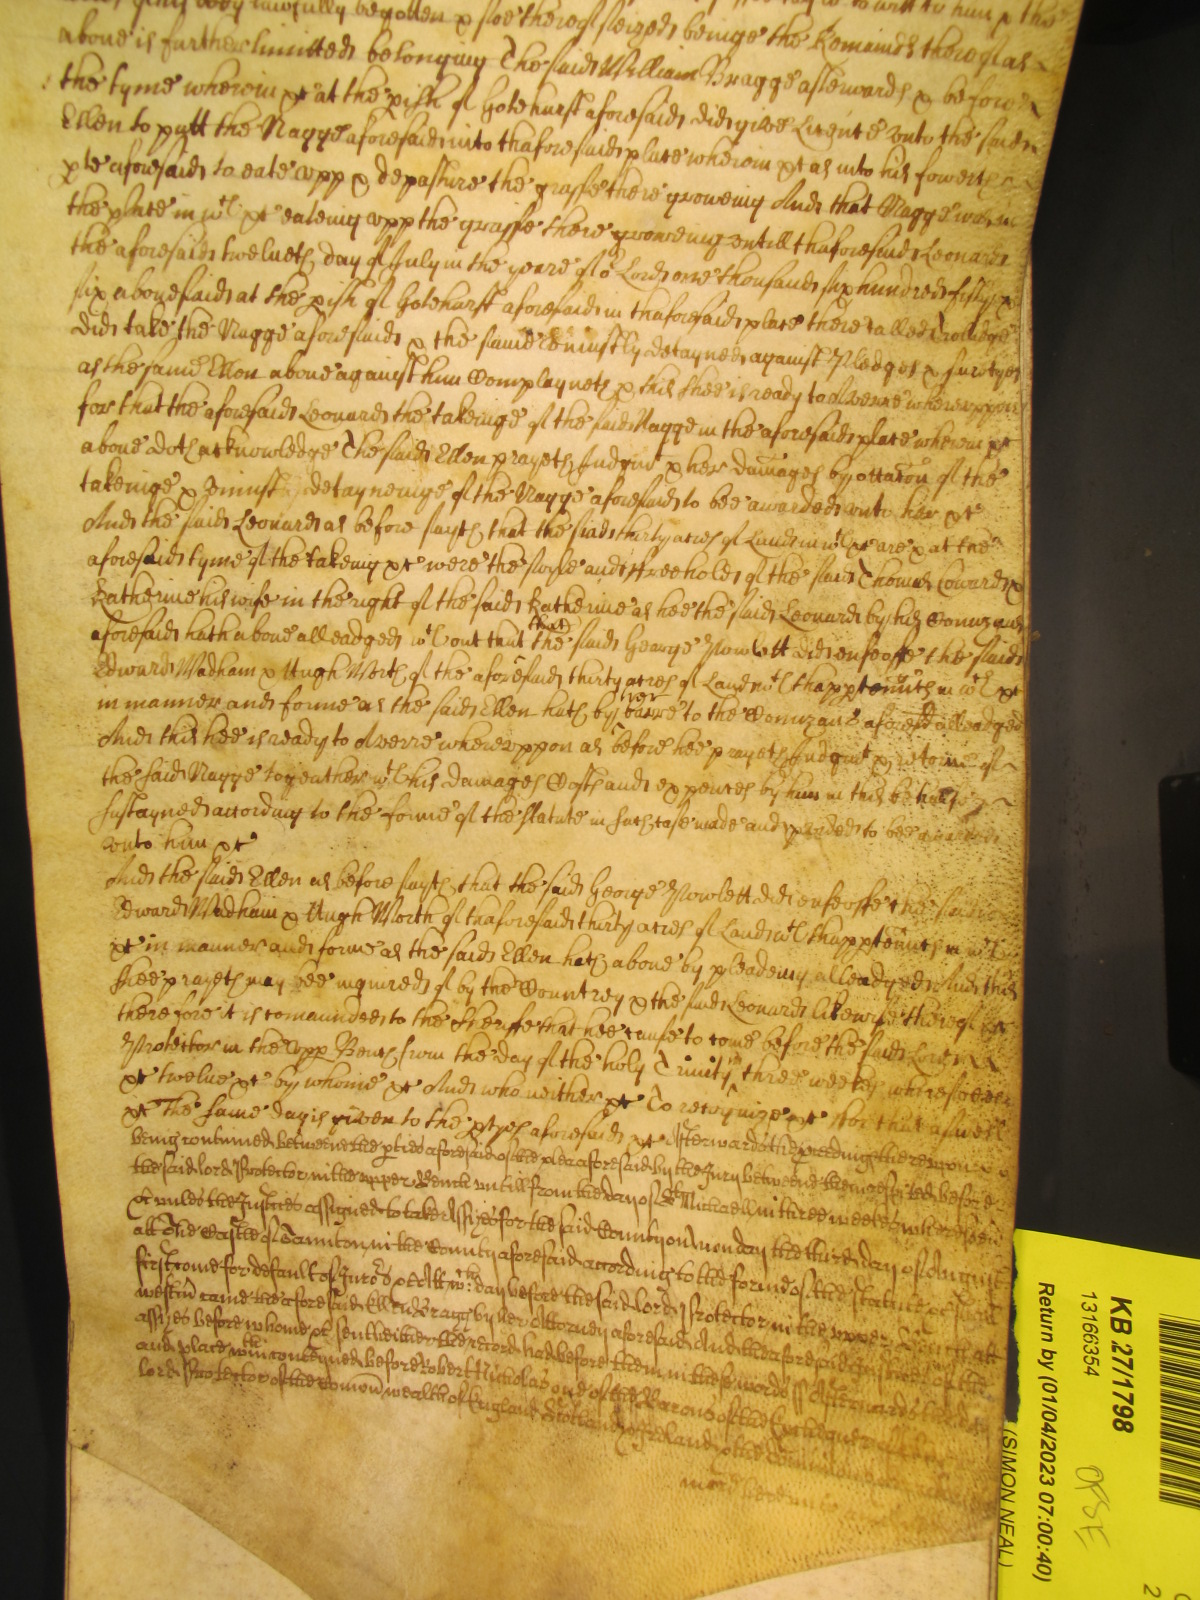 lawfully begotten & soe thereof seized beinge the Remaind thereof as
above is further limitted belonging The said William Bragge afterwards & before
the tyme wherein &c at the pish of Gotehurst aforesaid did give Licence unto the said
Ellen to putt the Nagge aforesaid into thaforesaid place wherein &c as into his
aforesaid to eate upp & depasture the grasse there groweing And that Nagge was in
the place in wch &c eateing upp the grasse there groweing untill thaforesaid Leonard
the aforesaid twelueth day of July in the yeare of or Lord one thousand six hundred fifty &
six abovesaid at the pish of Gotehurst aforesaid in thaforesaid place there called
did take the Nagge aforesaid & the same uniustly detayned against Pledges & suretyes
as the same Ellen above against him Complayneth & this shee is ready to Averre whereuppon
for that the aforesaid Leonard the takeinge of the said Nagge in the aforesaid place wherein &c
above doth acknowledge The said Ellen prayeth Judgmt & her damages by occacon of the
takeinge & uniust detayneinge of the Nagge aforesaid to bee awarded unto her &c
And the said Leonard as before sayth that the said thirty acres of Land in wch &c are & at the
aforesaid tyme of the takeing &c were the soyle and freehold of the said Thomas Coward &
Katherine his wife in the right of the said Katherine as hee the said Leonard by his Conuzans
aforesaid hath above alleadged wthout that that the said George Powlett did enfeoffe the said
Edward Wadham & Hugh North of the aforesaid thirty acres of Land wth thapptenncs in wch &c
in manner and forme as the said Ellen hath by barre to the Conuzans aforesd alleadged
And this hee is ready to Averre whereuppon as before hee prayeth Judgmt & retorne of
the said Nagge togeather wth his damages Costs and expences by him in this behalfe
sustayned according to the forme of the statute in such case made and pvided to bee awarded
unto him &c
And the said Ellen as before sayth that the said George Powlett did enfeoffe the said
Edward Wadham & Hugh North of thaforesaid thirty acres of Land wth thapptenncs in wch
&c in manner and forme as the said Ellen hath above by pleading alleadged And this
shee prayeth may bee inquired of by the Countrey & the said Leonard likewise thereof &c
therefore it is comaunded to the Sheriffe that hee cause to come before the said Lord
Protector in the Upp Bench from the day of the holy Trinity in three weekes wheresoever
&c twelve &c by whome &c And who neither &c To recognize &c For that aswell
&c The same day is given to the ptyes aforesaid &c Afterwards the pceedings thereupon
being continued betweene the pties aforesaid of the plea aforesaid by the Jury betweene them respited before
the said lord Protector in the upper Bench untill from the day of St Michaell in three weekes wheresoevr
&c unles the Justices assigned to take Assizes for the said County on Monday the third day of August
att the Castle of Taunton in the County aforesaid according to the forme of the statute &c shall
first come for default of Juro's &c Att wch day before the said lord Protector in the upper Bench att
Westmr came the aforesaid Ellen Bragg by her Attorney aforesaid And the aforesaid Justices of the
assizes before whome &c sent heither there record had before them in these words ss Afterwards the day
and place wthin conteyned before Robert Nicholas one of the Barons of the Exchequer
lord Protector of the comon wealth of England Scotland & Ireland & the dominions
KB 27/1798
13166354
Return by (01/04/2023 07:00:40)
(SIMON NEAL)